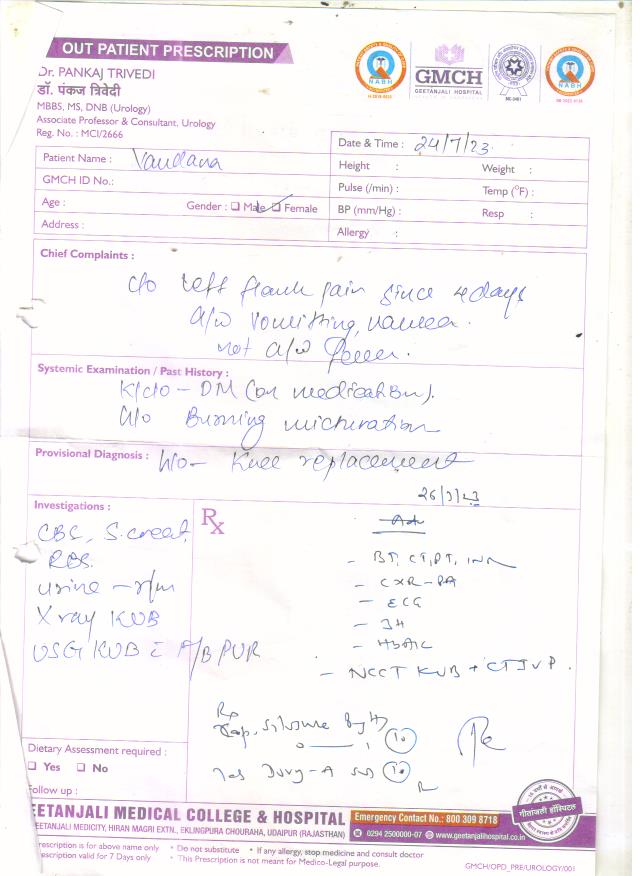 OUT PATIENT PRESCRIPTION
Dr. PANKAJ TRIVEDI
डॉ. पंकज त्रिवेदी
MBBS, MS, DNB (Urology)
Associate Professor & Consultant, Urology
Reg. No. : MCI/2666
NABH
GMCH
GEETANJALI HOSPITAL
NABH
Date & Time : 24/7/23
Patient Name : Vandana
Height : Weight :
GMCH ID No.:
Pulse (/min) : Temp (°F) :
Age : Gender : Male Female
BP (mm/Hg) : Resp :
Address :
Allergy :
Chief Complaints :
c/o left flank pain since 4 days
a/w vomitting, nausea.
not a/w fever.
Systemic Examination / Past History :
K/c/o - DM (on medication).
H/o Burning micturation
Provisional Diagnosis : H/o - Knee replacement
Investigations :
CBC, S. creat,
RBS.
urine - r/m
X ray KUB
USG KUB c A/B PVR
Rx
Adv
- BT, CT, PT, INR
- CXR - PA
- ECG
- HbA1C
- NCCT KUB + CT IVP.
Rx
Cap.
Dietary Assessment required :
Yes No
Follow up :
GEETANJALI MEDICAL COLLEGE & HOSPITAL
Emergency Contact No.: 800 309 8718
GEETANJALI MEDICITY, HIRAN MAGRI EXTN., EKLINGPURA CHOURAHA, UDAIPUR (RAJASTHAN)
0294 2500000-07 www.geetanjalihospital.co.in
गीतांजली हॉस्पिटल
prescription is for above name only • Do not substitute • If any allergy, stop medicine and consult doctor
prescription valid for 7 Days only • This Prescription is not meant for Medico-Legal purpose.
GMCH/OPD_PRE/UROLOGY/001